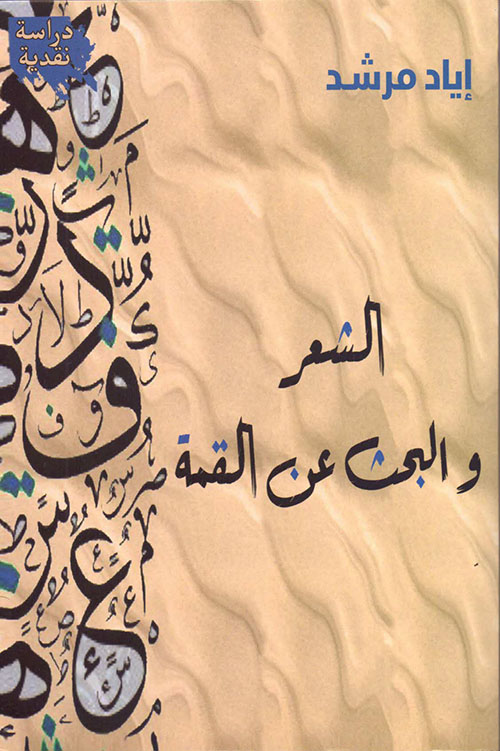 دراسة
نقدية
إياد مرشد
الشعر
والبحث عن القمة